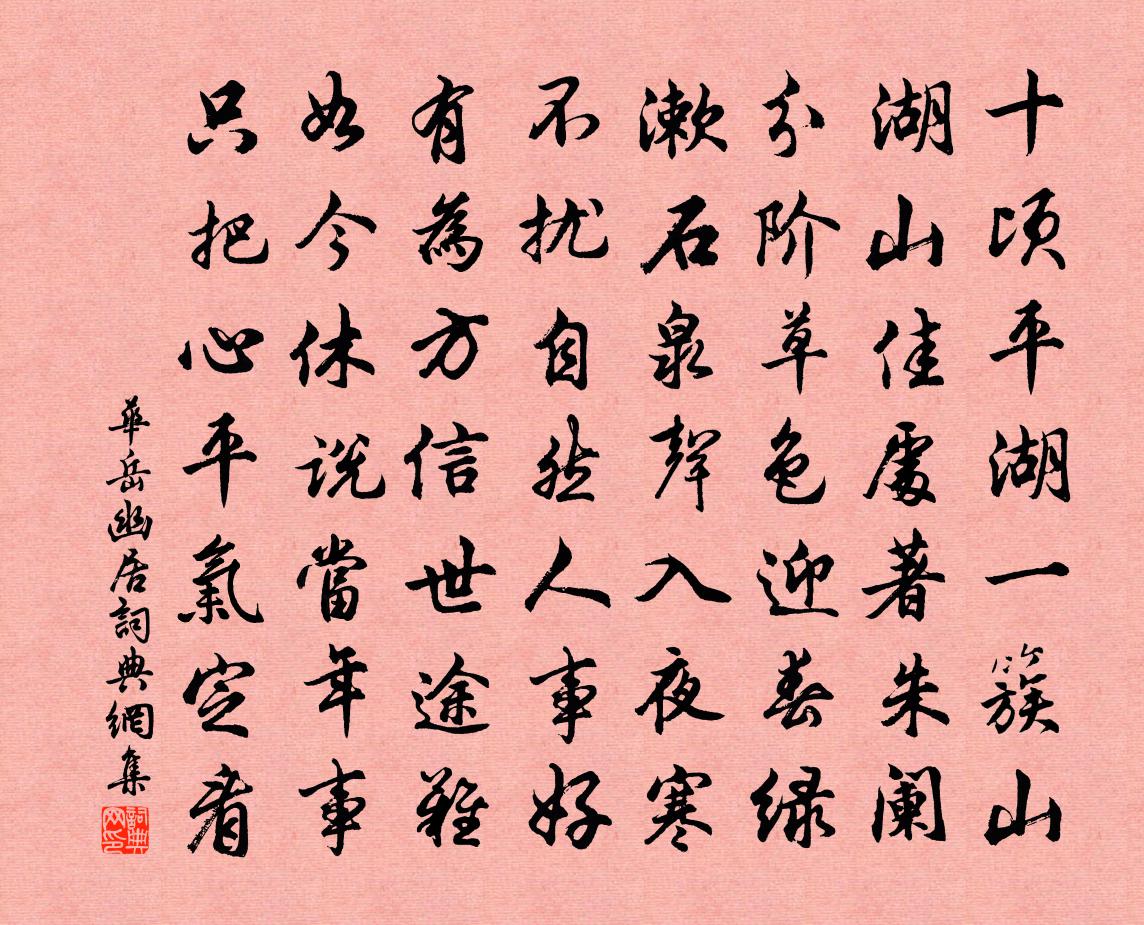 十顷平湖一簇山
湖山佳處著朱阑
分阶草色迎春绿
漱石泉聲入夜寒
不扰自然人事好
有為方信世途難
如今休说當年事
只把心平氣定看
華岳幽居詞典網集
詞典网印